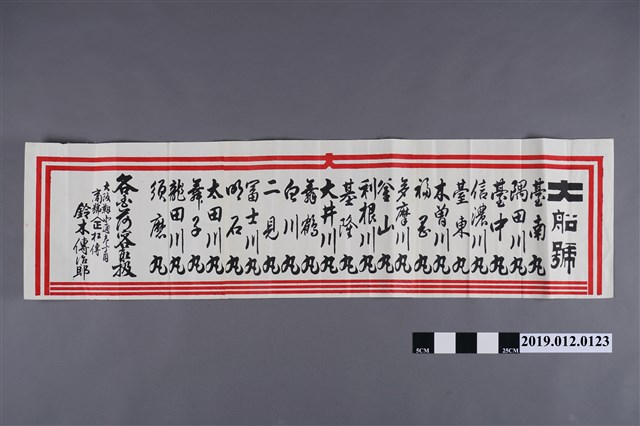 大
大船號
臺南丸
隅田川丸
臺中丸
信濃川丸
臺東丸
木曽川丸
福岡丸
多摩川丸
釜山丸
利根川丸
基隆丸
大井川丸
舞鶴丸
白川丸
二見丸
冨士川丸
明石丸
太田川丸
舞子丸
龍田川丸
須磨丸
各国荷客取扱
鈴木傳治郎
5CM
25CM
2019.012.0123